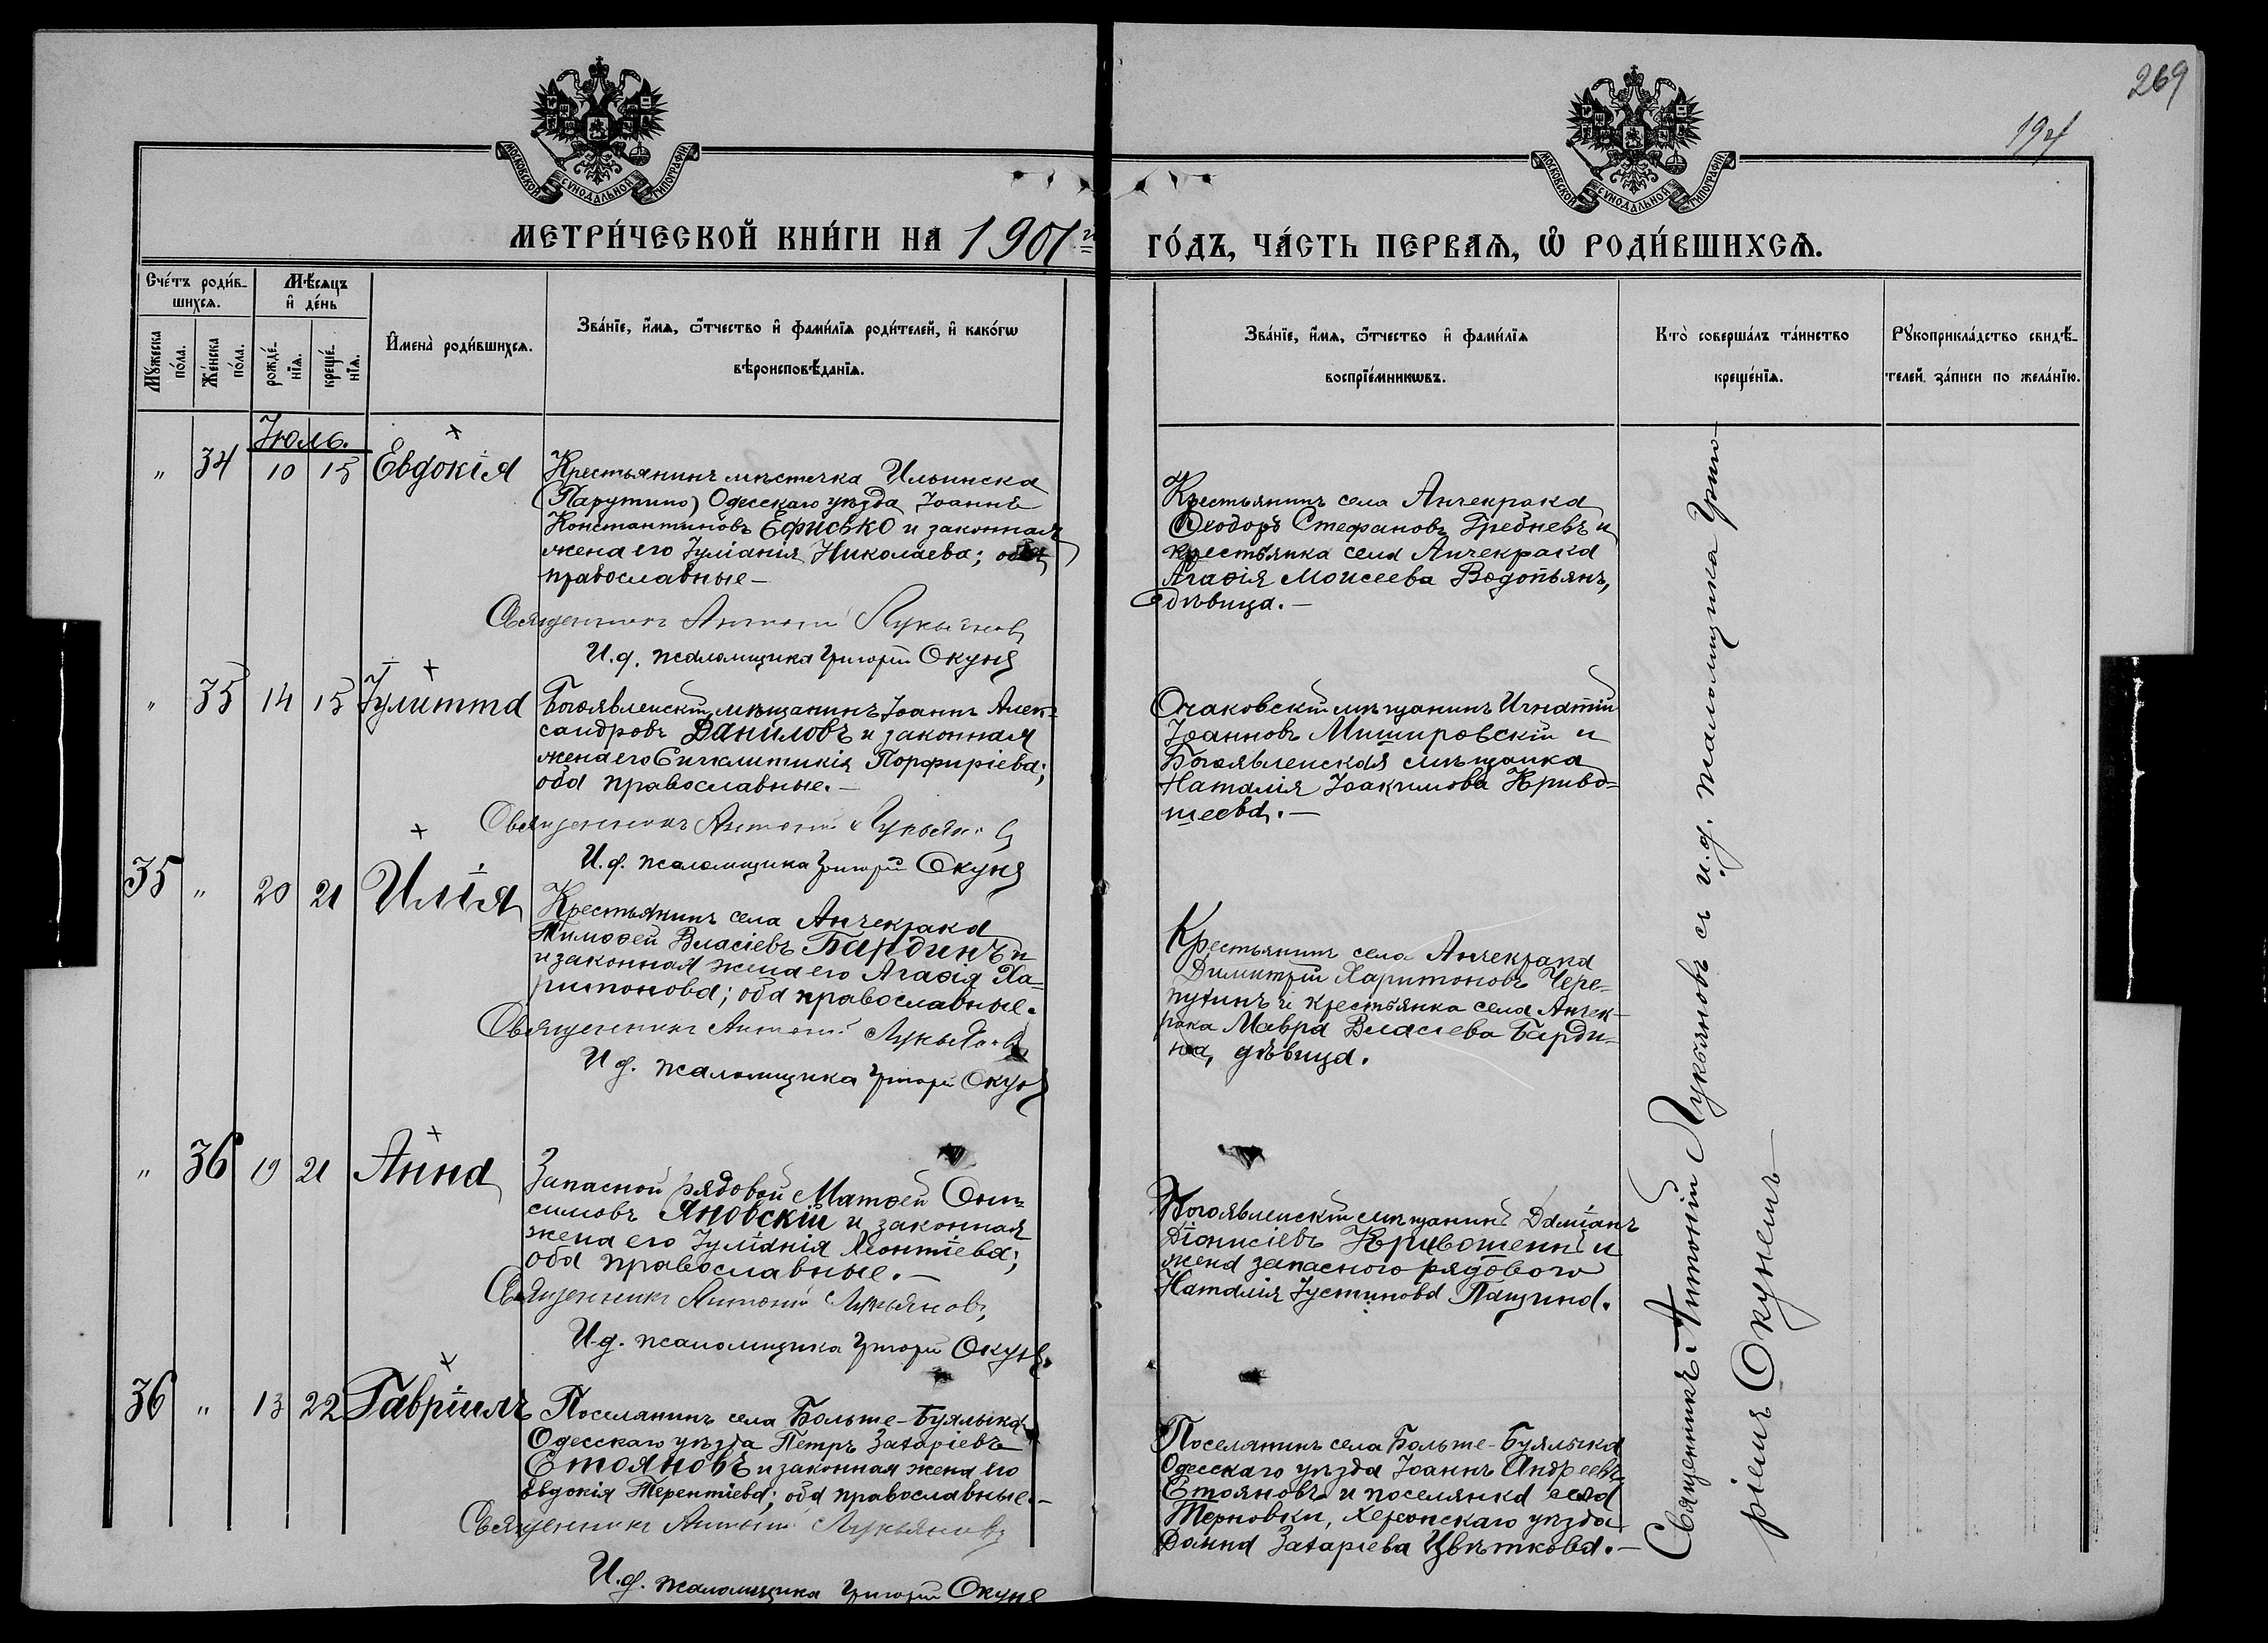 269
194
МОСКОВСКОЙ СУНОДАЛЬНОЙ ТИПОГРАФІИ
МОСКОВСКОЙ СУНОДАЛЬНОЙ ТИПОГРАФІИ
МЕТРИ́ЧЕСКОЙ КНИ́ГИ НА 1901 г
ГО́ДЪ, ЧА́СТЬ ПЕРВАѦ, Ѡ҆ РОДИ́ВШИХСѦ.
Сче́тъ роди́в-
шихсѧ.
Мѣ́сѧцъ
и҆ де́нь
Мꙋ́жеска
по́ла.
Же́нска
по́ла.
рожде́-
нїѧ.
креще́-
нїѧ.
И҆мена̀ роди́вшихсѧ.
Зва́нїе, и҆́мѧ, ѻ҆́тчество и҆ фами́лїѧ роди́телей, и҆ како́гѡ
вѣроисповѣ́данїѧ.
Зва́нїе, и҆́мѧ, ѻ҆́тчество и҆ фами́лїѧ
воспрїе́мникѡвъ.
Кто̀ соверша́лъ та́инство
креще́нїѧ.
Рꙋкоприкла́дство свидѣ́-
телей за́писи по жела́нїю.
Іюль.
" 34 10 15 Евдокія
Крестьянинъ мѣстечка Ильинска
(Парутино) Одесскаго уѣзда Іоаннъ
Константиновъ Ефисько и законная
жена его Іуліанія Николаева; оба
православные —
Священникъ Антоній Лукьяновъ
И. д. псаломщика Григорій Окунь
Крестьянинъ села Анчекрака
Ѳеодоръ Стефановъ Гребневъ и
крестьянка села Анчекрака
Агаѳія Моисеева Водопьянъ,
дѣвица. —
" 35 14 15 Іулитта
Богоявленскій мѣщанинъ Іоаннъ Алек-
сандровъ Даниловъ и законная
жена его Сигклитикія Порфиріева;
оба православные. —
Священникъ Антоній Лукьяновъ
И. д. псаломщика Григорій Окунь
Очаковскій мѣщанинъ Игнатій
Іоанновъ Мишировскій и
Богоявленская мѣщанка
Наталія Іоакимова Криво-
шеева. —
35 " 20 21 Илія
Крестьянинъ села Анчекрака
Тимоѳей Власіевъ Бардинъ и
и законная жена его Агаѳія Ха-
ритонова; оба православные.
Священникъ Антоній Лукьяновъ
И д. псаломщика Григорій Окунь
Крестьянинъ села Анчекрака
Димитрій Харитоновъ Чере-
пухинъ и крестьянка села Анчек-
рака Мавра Власіева Барди-
на, дѣвица.
" 36 19 21 Анна
Запасной рядовой Матѳей Они-
симовъ Яновскій и законная
жена его Іуліанія Леонтіева;
оба православные. —
Священникъ Антоній Лукьяновъ
И. д. псаломщика Григорій Окунь
Богоявленскій мѣщанинъ Даміанъ
Діонисіевъ Кривошеинъ и
жена запасного рядового
Наталія Іустинова Пащина.
36 " 13 22 Гавріилъ
Поселянинъ села Больше-Буялыка
Одесскаго уѣзда Петръ Захаріевъ
Стояновъ и законная жена его
Евдокія Терентіева; оба православные. —
Священникъ Антоній Лукьяновъ
И. д. псаломщика Григорій Окунь
Поселянинъ села Больше-Буялыка
Одесскаго уѣзда Іоаннъ Андреевъ
Стояновъ и поселянка села
Терновки, Херсонскаго уѣзда
Домна Захаріева Цвѣткова. —
Священникъ Антоній Лукьяновъ съ и. д. псаломщика Григо-
ріемъ Окунемъ —